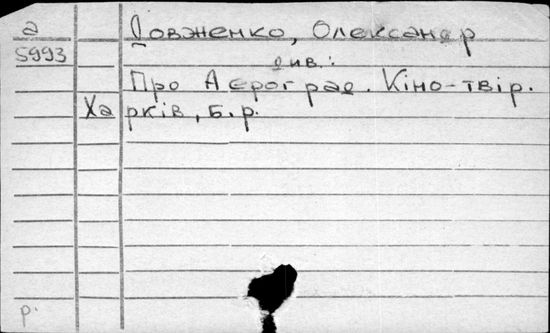 а Довженко, Олександр
5993 див.:
Про Аєроград. Кіно-твір.
Харків, б.р.
р.